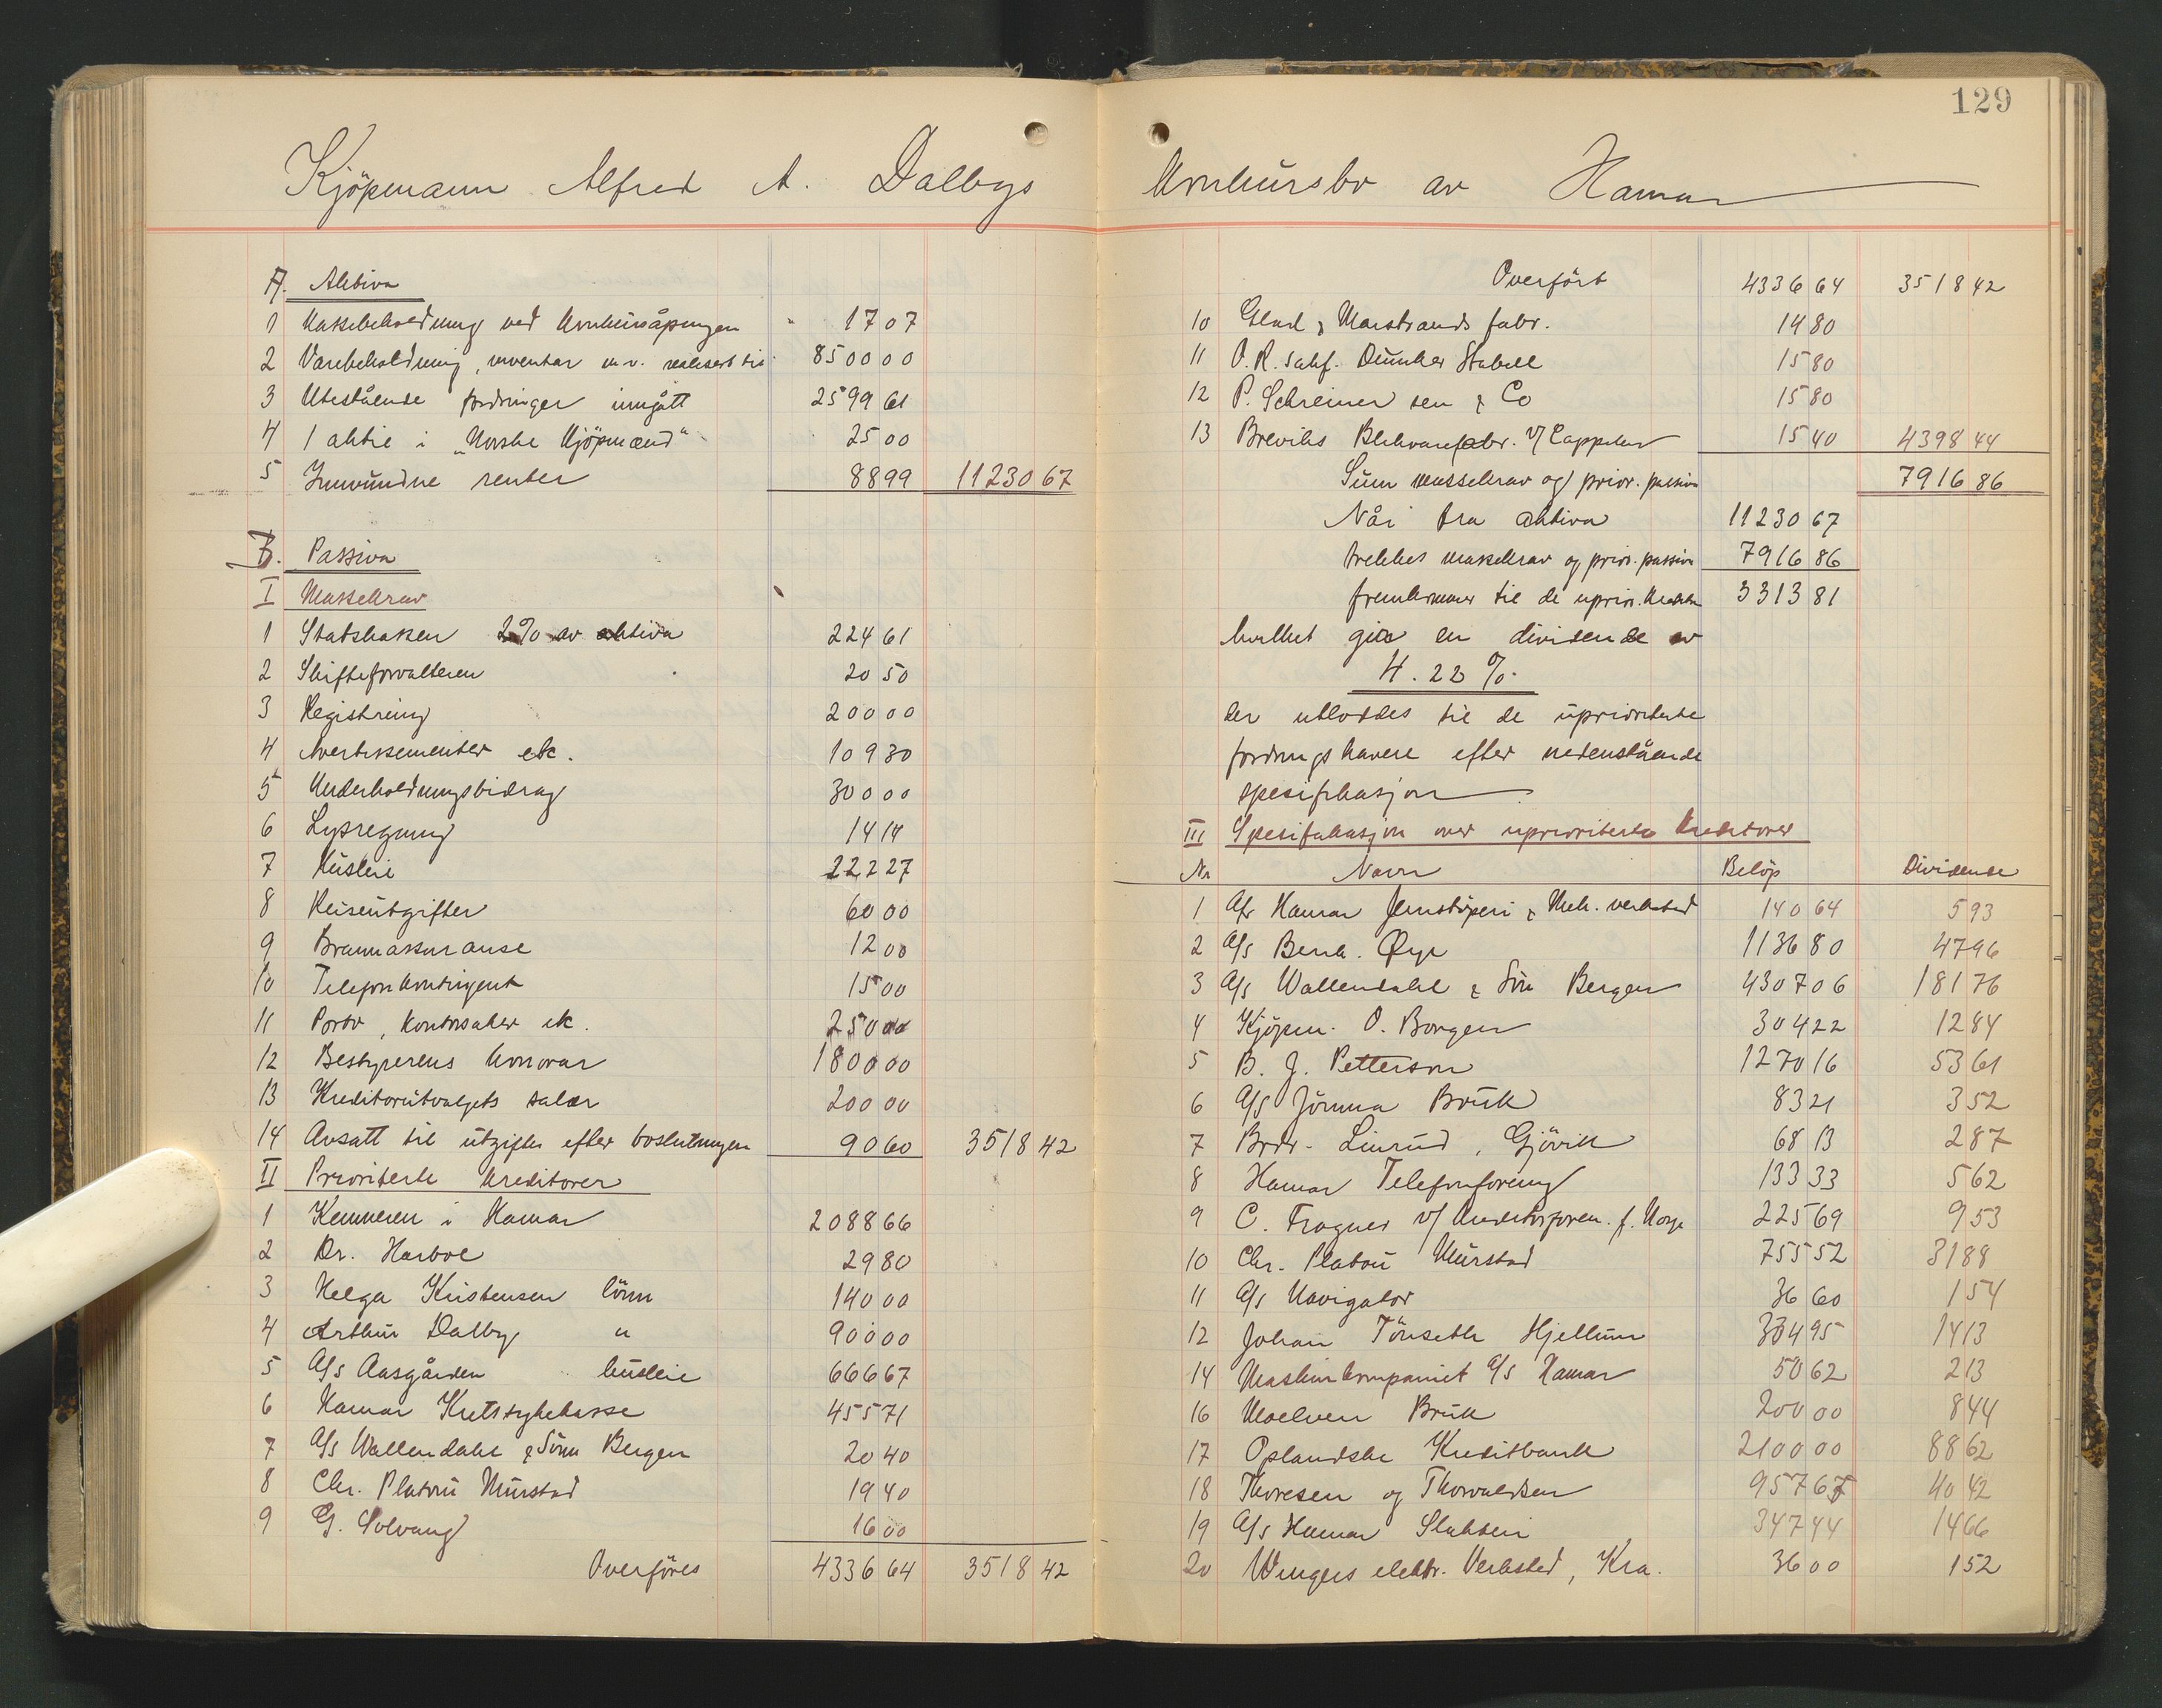 129
Kjöpmann Alfred A. Dalbys Konkursbo av Hamar
A. Aktiva
1 Kassebeholdning ved Konkursåpningen 17 07
2 Varebeholdning, inventar m.v. realisert til 8500 00
3 Utestående fordringer inngått 2599 61
4 1 aktie i "Norske Kjöpmænd" 25 00
5 Innvundne renter 88 99 11230 67
B. Passiva
I Massekrav
1 Statskassen 2% av aktiva 224 61
2 Skifteforvalteren 20 50
3 Registrering 200 00
4 Avertissementer etc. 109 30
5 Underholdningsbidrag 300 00
6 Lysregning 14 14
7 Husleie 222 27
8 Reiseutgifter 60 00
9 Brannassuranse 12 00
10 Telefonkontingent 15 00
11 Porto, kontorsaker etc. 250 00
12 Bestyrerens honorar 1800 00
13 Kreditorutvalgets salær 200 00
14 Avsatt til utgifter efter boslutningen 90 60 3518 42
II Prioriterte kreditorer
1 Kemneren i Hamar 2088 66
2 Dr. Harboe 29 80
3 Helga Kristensen lönn 140 00
4 Arthur Dalby " 900 00
5 A/s Aasgården husleie 666 67
6 Hamar Kretssykekasse 455 71
7 A/s Wallendahl & Sönn Bergen 20 40
8 Chr. Platou Mürstad 19 40
9 G. Solvang 16 00
Overföres 4336 64 3518 42
Overfört 4336 64 3518 42
10 Glad & Marstrands fabr. 14 80
11 O. R. sakf. Dunker Stabell 15 80
12 P. Schreiner sen & Co 15 80
13 Breviks Blikvarefabr. v/ Cappelen 15 40 4398 44
Sum massekrav og prior. passiva 7916 86
Når fra aktiva 11230 67
trekkes massekrav og prior. passiva 7916 86
fremkommer til de uprior. kreditorer 3313 81
hvilket gir en dividende av
4.22 %
der utloddes til de uprioriterte
fordringshavere efter nedenstående
spesifikasjon
III Spesifikasjon over uprioriterte kreditorer
Nr Navn Belöp Dividende
1 A/s Hamar Jernstöperi & Mek. verksted 140 64 5 93
2 A/s Bernh. Øye 1136 80 47 96
3 A/s Wallendahl & Sön Bergen 4307 06 181 76
4 Kjöpm. O. Borgen 304 22 12 84
5 B. J. Petterson 1270 16 53 61
6 A/S Jömna Bruk 83 21 3 52
7 Brdr. Linrud, Gjövik 68 13 2 87
8 Hamar Telefonforening 133 33 5 62
9 C. Fragner v/ Kreditorforen. f. Norge 225 69 9 53
10 Chr. Platou Mürstad 755 52 31 88
11 A/s Navigator 36 60 1 54
12 Johan Tönseth Hjellum 334 95 14 13
14 Maskinkompaniet A/S Hamar 50 62 2 13
16 Moelven Bruk 200 00 8 44
17 Oplandske Kreditbank 2100 00 88 62
18 Thoresen og Thorvaldsen 957 67 40 42
19 A/s Hamar Slakteri 347 44 14 66
20 Wingers elektr. Verksted, Kra. 36 00 1 52